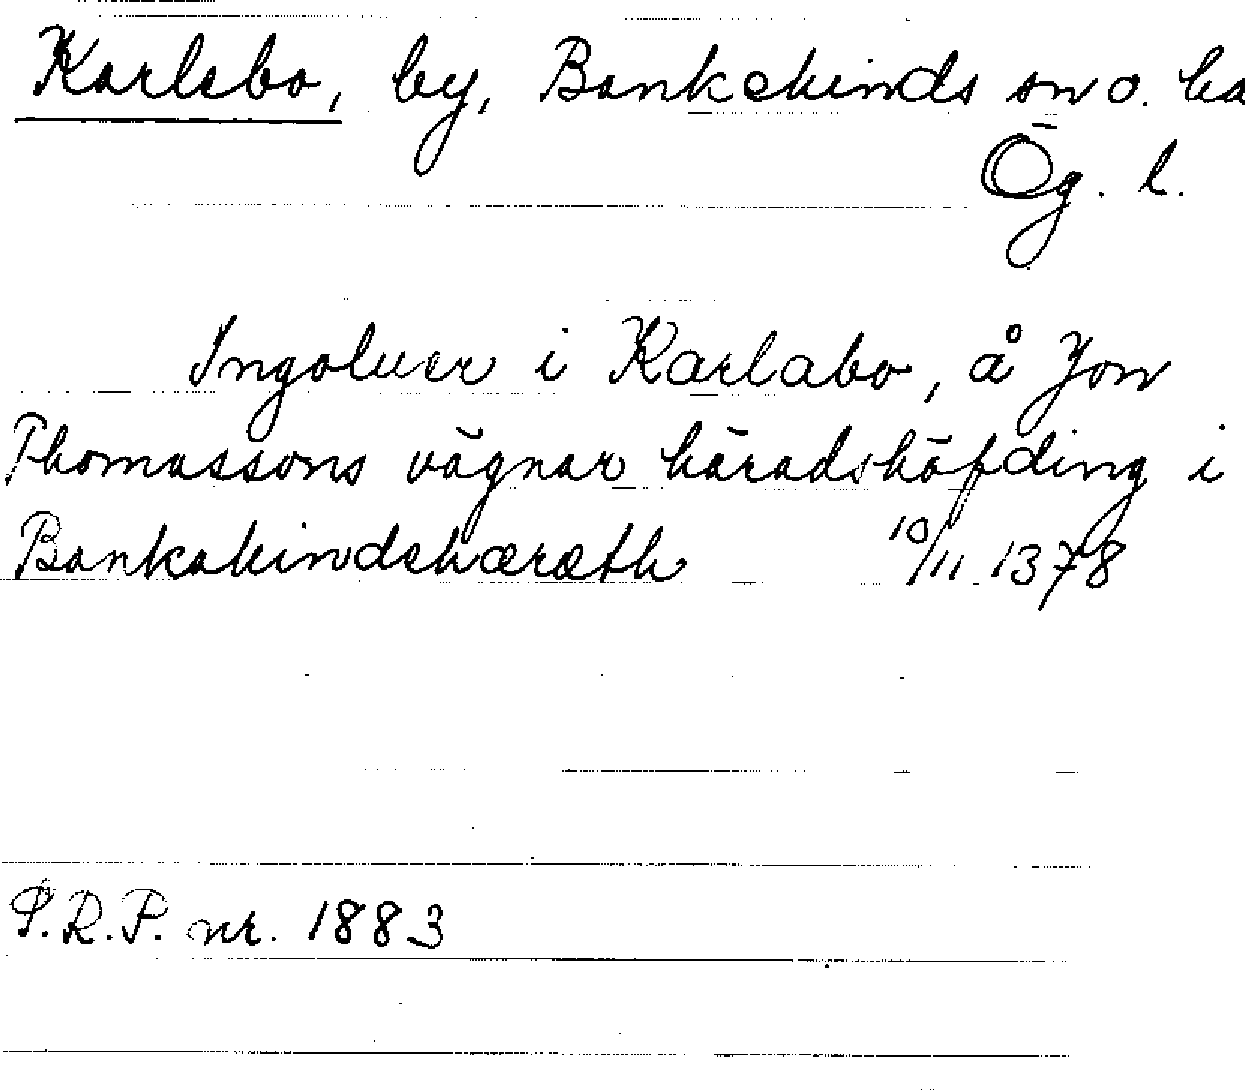 Karlsbo, by, Bankekinds sn o. hd
Ög. l.
Ingoluer i Karlabo, å Jon
Thomassons vägnar häradshöfding i
Bankakindshæræth 10/11 1378
S.R.P. nr. 1883